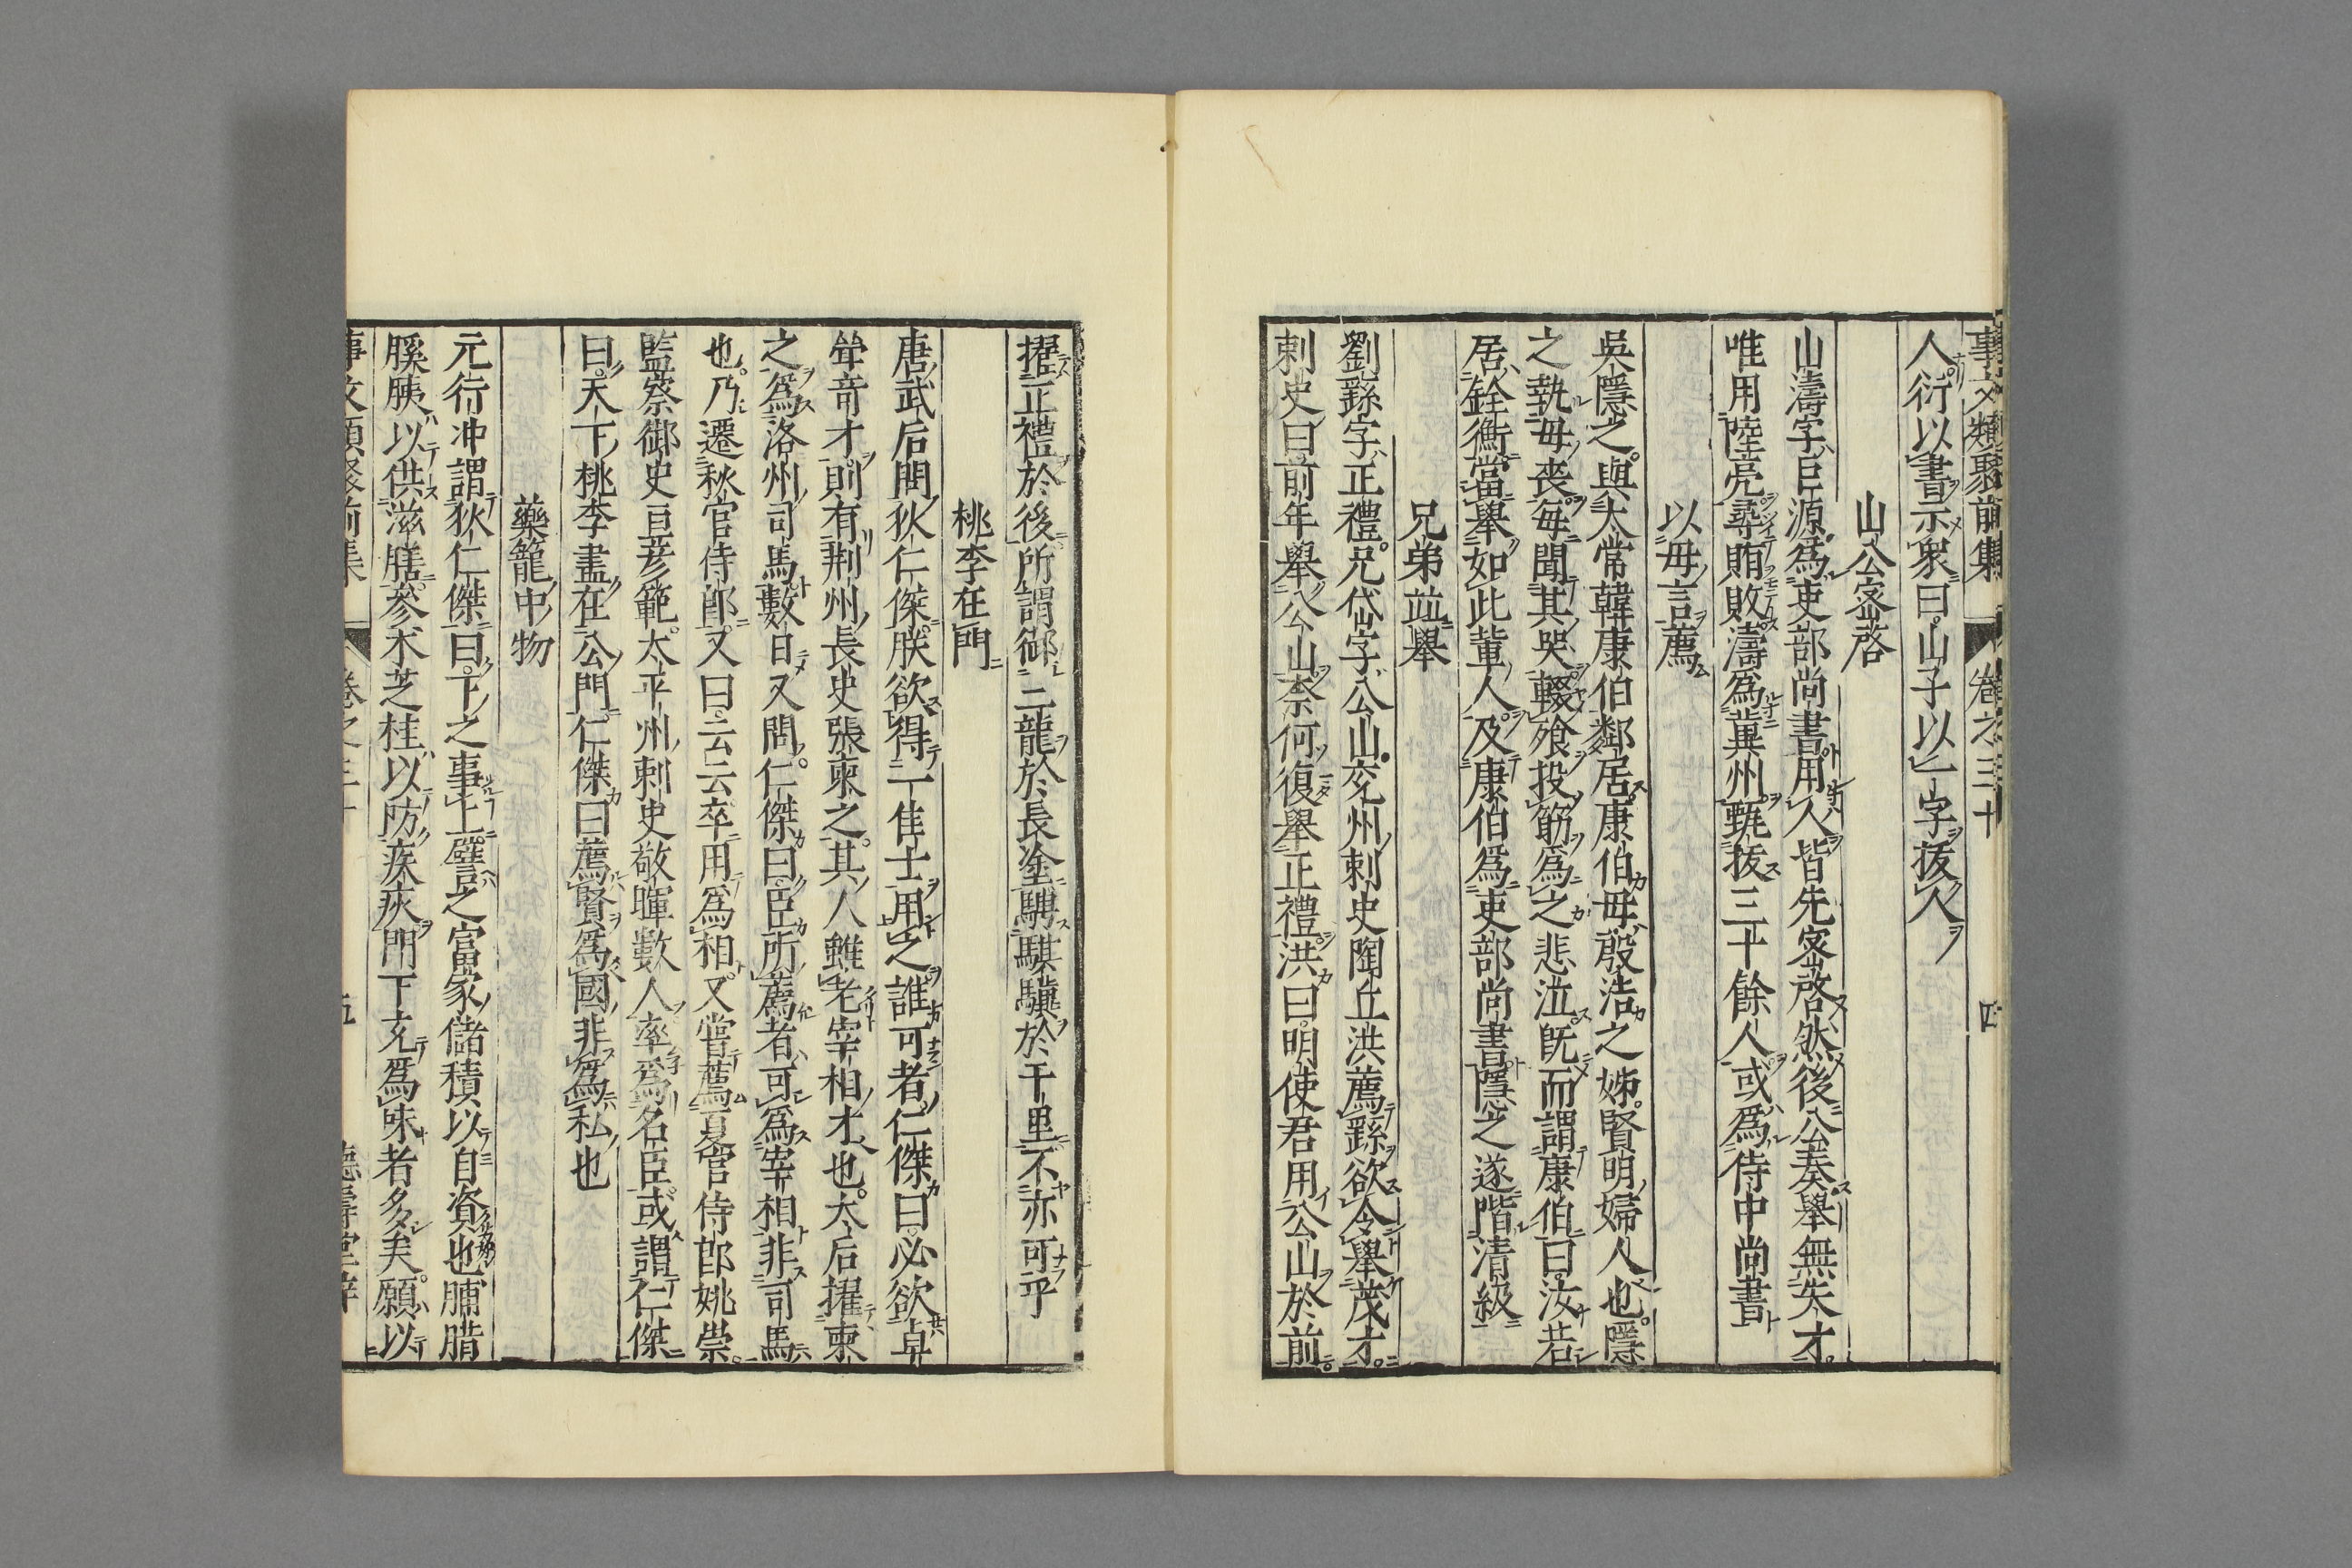 事文類聚前集 卷之三十 四
人衍以書示衆曰山子以一字拔人
山公密啓
山濤字巨源爲吏部尚書用人皆先密啓然後公奏舉無失才
唯用陸亮尋賄敗濤爲冀州甄拔三十餘人或爲侍中尚書
以母言薦
吳隱之與太常韓康伯鄰居康伯母殷浩之姊賢明婦人也隱
之執母喪每聞其哭輟飱投筯爲之悲泣旣而謂康伯曰汝若
居銓衡當舉如此輩人及康伯爲吏部尚書隱之遂階清級
兄弟並舉
劉繇字正禮兄岱字公山兗州刺史陶丘洪薦繇欲令舉茂才
刺史曰前年舉公山柰何復舉正禮洪曰明使君用公山於前
擢正禮於後所謂御二龍於長塗騁騏驥於千里不亦可乎
桃李在門
唐武后問狄仁傑朕欲得一佳士用之誰可者仁傑曰必欲卓
犖竒才則有荆州長史張柬之其人雖老宰相才也太后擢柬
之爲洛州司馬數日又問仁傑曰臣所薦者可爲宰相非司馬
也乃遷秋官侍郎又曰云云卒用爲相又嘗薦夏官侍郎姚崇
監察御史亘彦範太平州刺史敬暉數人率爲名臣或謂仁傑
曰天下桃李盡在公門仁傑曰薦賢爲國非爲私也
藥籠中物
元行冲謂狄仁傑曰下之事上譬之富家儲積以自資也脯腊
膎胰以供滋膳參朮芝桂以防疾疢門下充爲味者多矣願以
事文類聚前集 卷之三十 五 德壽堂梓